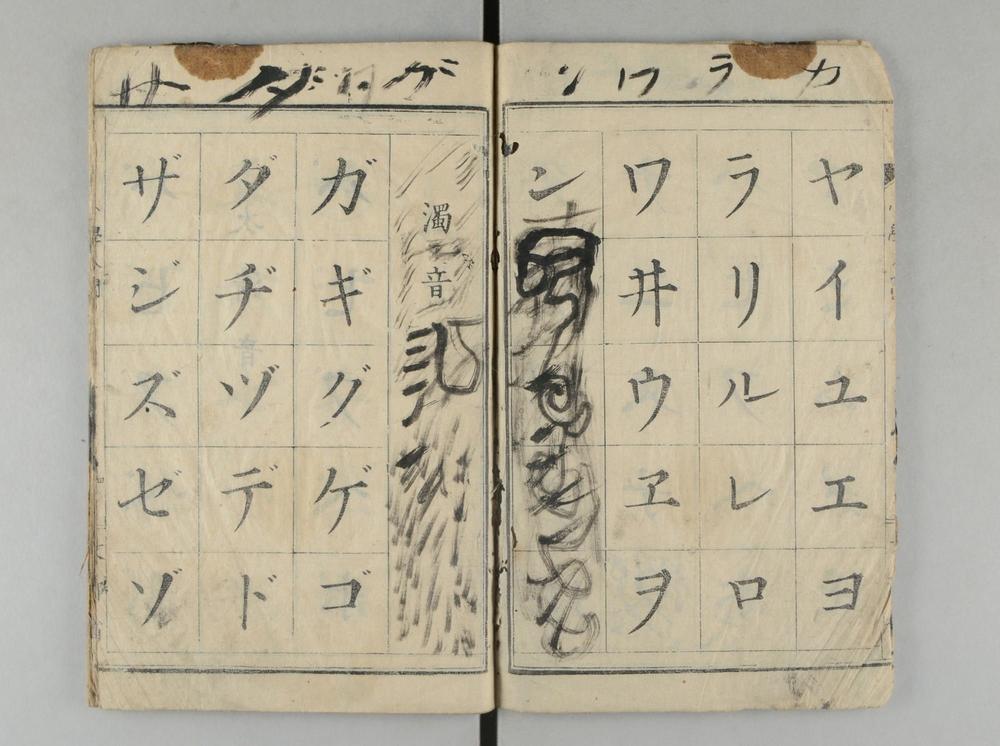 カ ラ ワ ン
ヤイユエヨ
ラリルレロ
ワ井ウヱヲ
ン
ガ ダ サ
濁音
ガギグゲゴ
ダヂヅデド
ザジズゼゾ